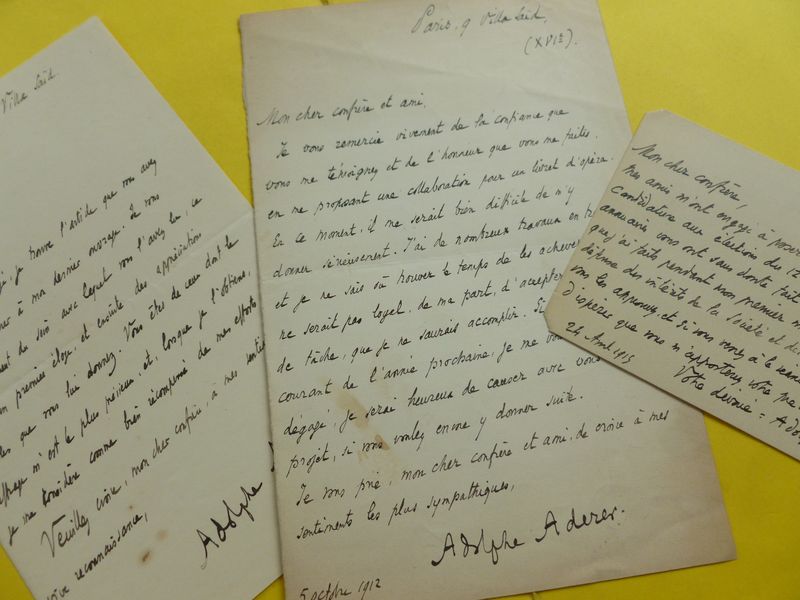 Villa Saïd.
je trouve l'article que vous avez
à mon dernier ouvrage. Je vous
du soin avec lequel vous l'avez lu, ce
premier éloge, et ensuite des appréciations
que vous lui donnez. Vous êtes de ceux dont le
suffrage m'est le plus précieux, et, lorsque je l'obtiens,
je me considère comme bien récompensé de mes efforts
Veuillez croire, mon cher confrère, à mes
reconnaissance,
Adolphe
Paris, 9 Villa Saïd.
(XVIe).
Mon cher confrère et ami,
Je vous remercie vivement de la confiance que
vous me témoignez et de l'honneur que vous me faites
en me proposant une collaboration pour un livret d'opéra.
En ce moment, il me serait bien difficile de m'y
donner sérieusement. J'ai de nombreux travaux en
et je ne sais où trouver le temps de les achever
ne serait pas loyal, de ma part, d'accepter
de tâche, que je ne saurais accomplir. Si
courant de l'année prochaine, je me
dégagé, je serai heureux de causer avec vous
projet, si vous voulez encore y donner suite.
Je vous prie, mon cher confrère et ami, de croire à mes
sentiments les plus sympathiques,
Adolphe Aderer.
5 octobre 1912
Mon cher confrère,
Mes amis m'ont engagé à poser
candidature aux élections du 12
annuaires vous ont sans doute fait
que j'ai faits pendant mon premier
défense des intérêts de la société et
vous les approuvez, et si vous venez à la
d'espérer que vous m'apporterez votre
24 Avril
Votre dévoué : Ado